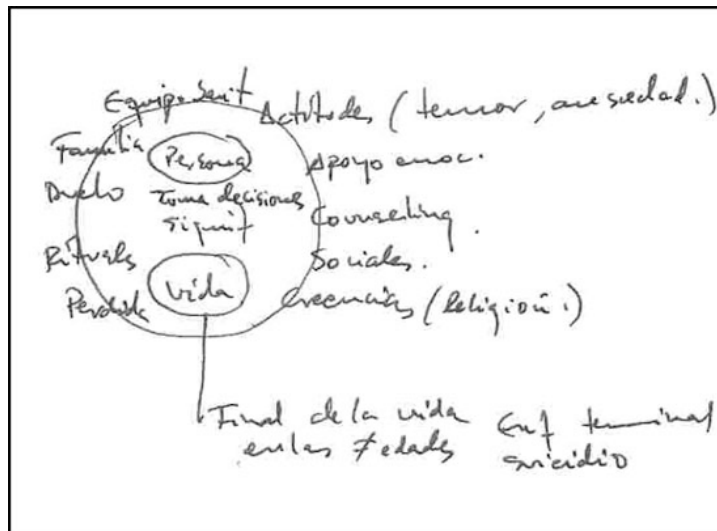 Equipo Sanit
Actitudes (temor, ansiedad.)
Familia
Persona
Apoyo emoc.
Duelo
Toma decisiones
signif
Counselling.
Rituals
Sociales.
Perdida
Vida
Creencias (Religión.)
Final de la vida
en las ≠ edades
Enf terminal
suicidio